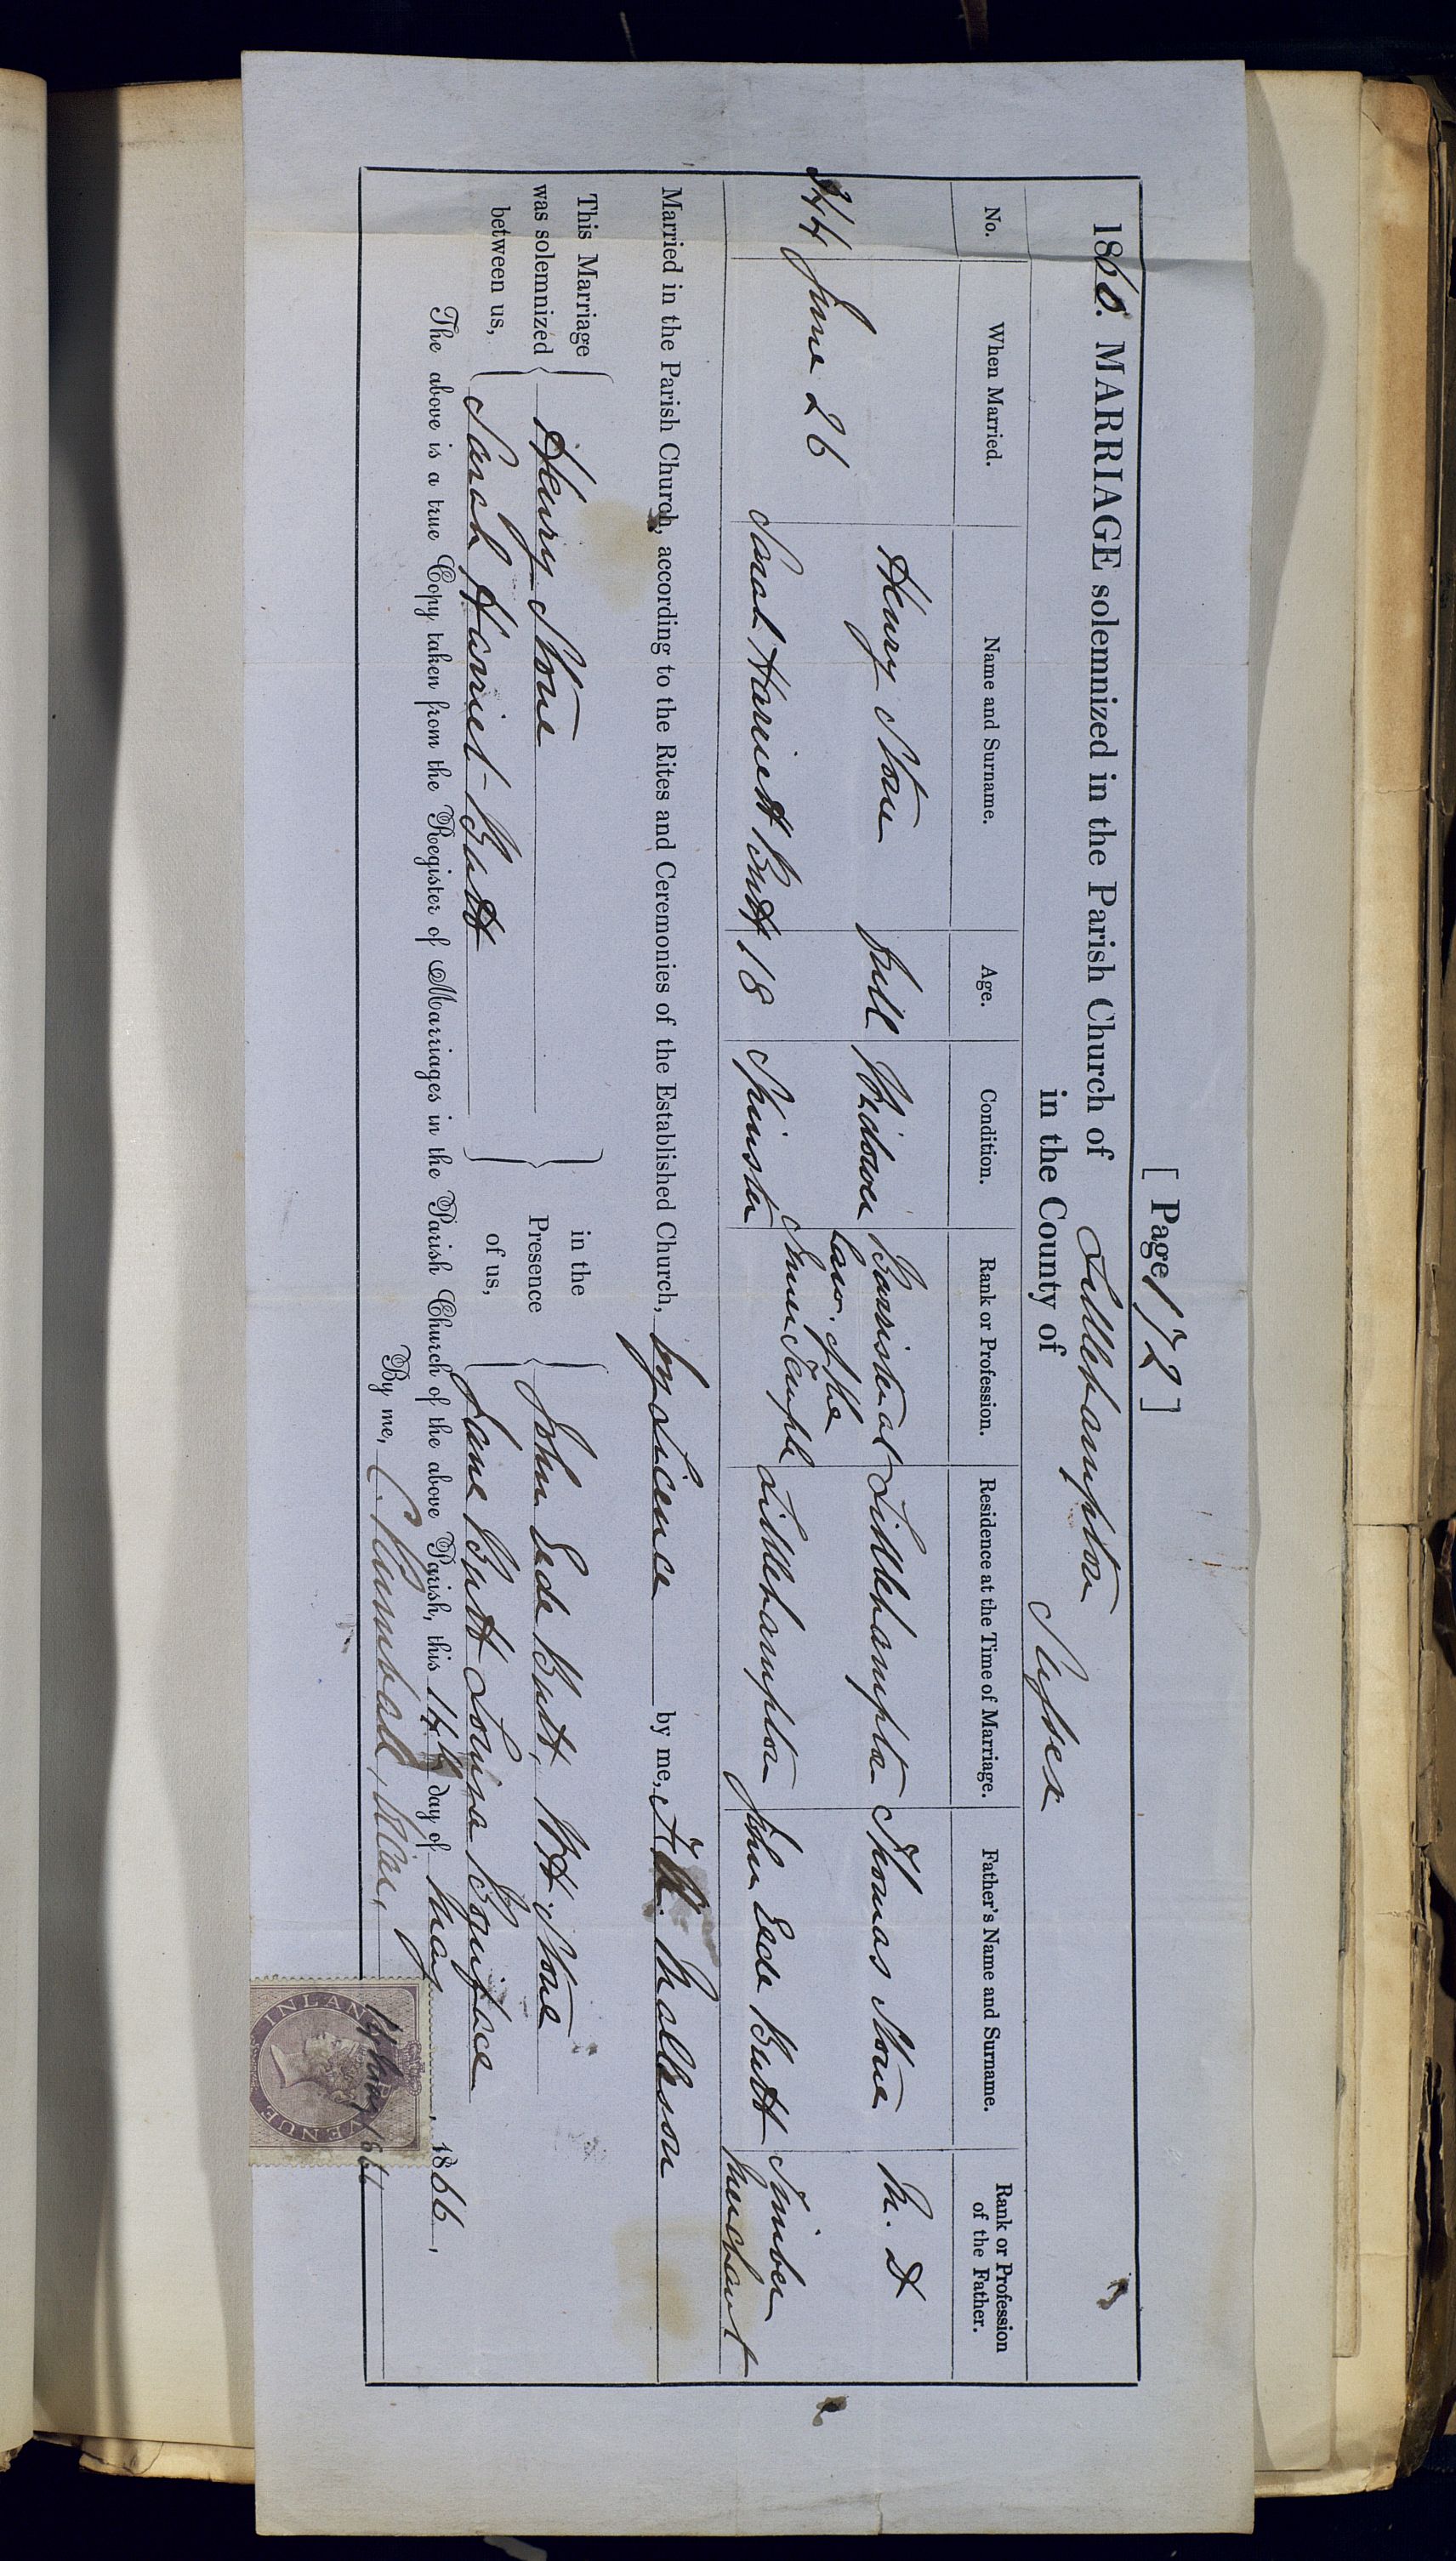 [ Page 172 ]
1860. MARRIAGE solemnized in the Parish Church of Littlehampton
in the County of Sussex
No. When Married. Name and Surname. Age. Condition. Rank or Profession. Residence at the Time of Marriage. Father's Name and Surname. Rank or Profession of the Father.
Henry Stone full Widower Barrister at Law of the Inner Temple Littlehampton Thomas Stone M. D
344 June 26
Sarah Harriett Butt 18 Spinster Littlehampton John Ede Butt Timber Merchant
Married in the Parish Church, according to the Rites and Ceremonies of the Established Church, by Licence by me, Malleson
This Marriage was solemnized between us, Henry Stone in the Presence of us, John Ede Butt, W H. Stone
Sarah Harriet Butt Jane Butt Louisa Boniface
The above is a true Copy taken from the Register of Marriages in the Parish Church of the above Parish, this 14th day of May, 1866,
By me, C Rumball, Vicar,
INLAND REVENUE
14 May 1866